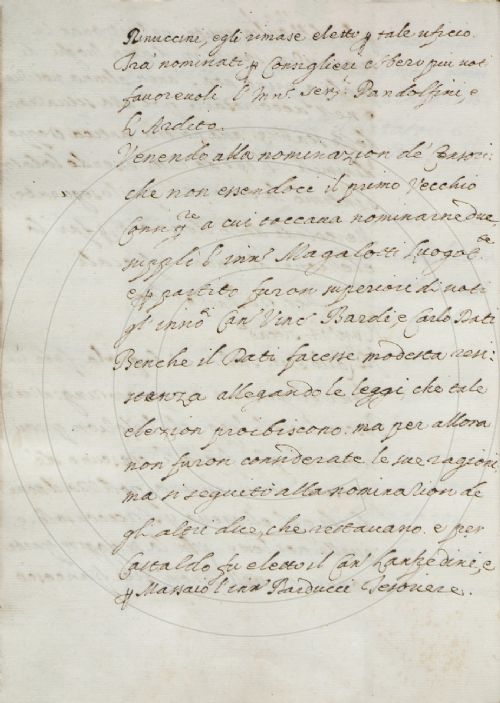 Rinuccini, egli rimase eletto p tale uficio.
Tra nominati p Consiglieri ebbero piu voti
favorevoli l'Inn. Ser. Pandolfini, e
l'Ardito.
Venendo alla nominazion de'
che non essendoce il primo Vecchio
a cui toccaua nominarne due,
suppli l'inn. Magalotti Luogo
e p partito furon superiori di uoti
gl'inno Can. Vinc. Bardi, e Carlo Dati
Benche il Dati facesse modesta resi:
stenza allegando le leggi che tale
elezion proibiscono: ma per allora
non furon considerate le sue ragioni,
ma si seguitò alla nominazion de
gli altri dice, che restauano. e per
Castaldo fu eletto il Can. Lanfredini, e
p Massaio l'inn. Barducci Tesoriere.